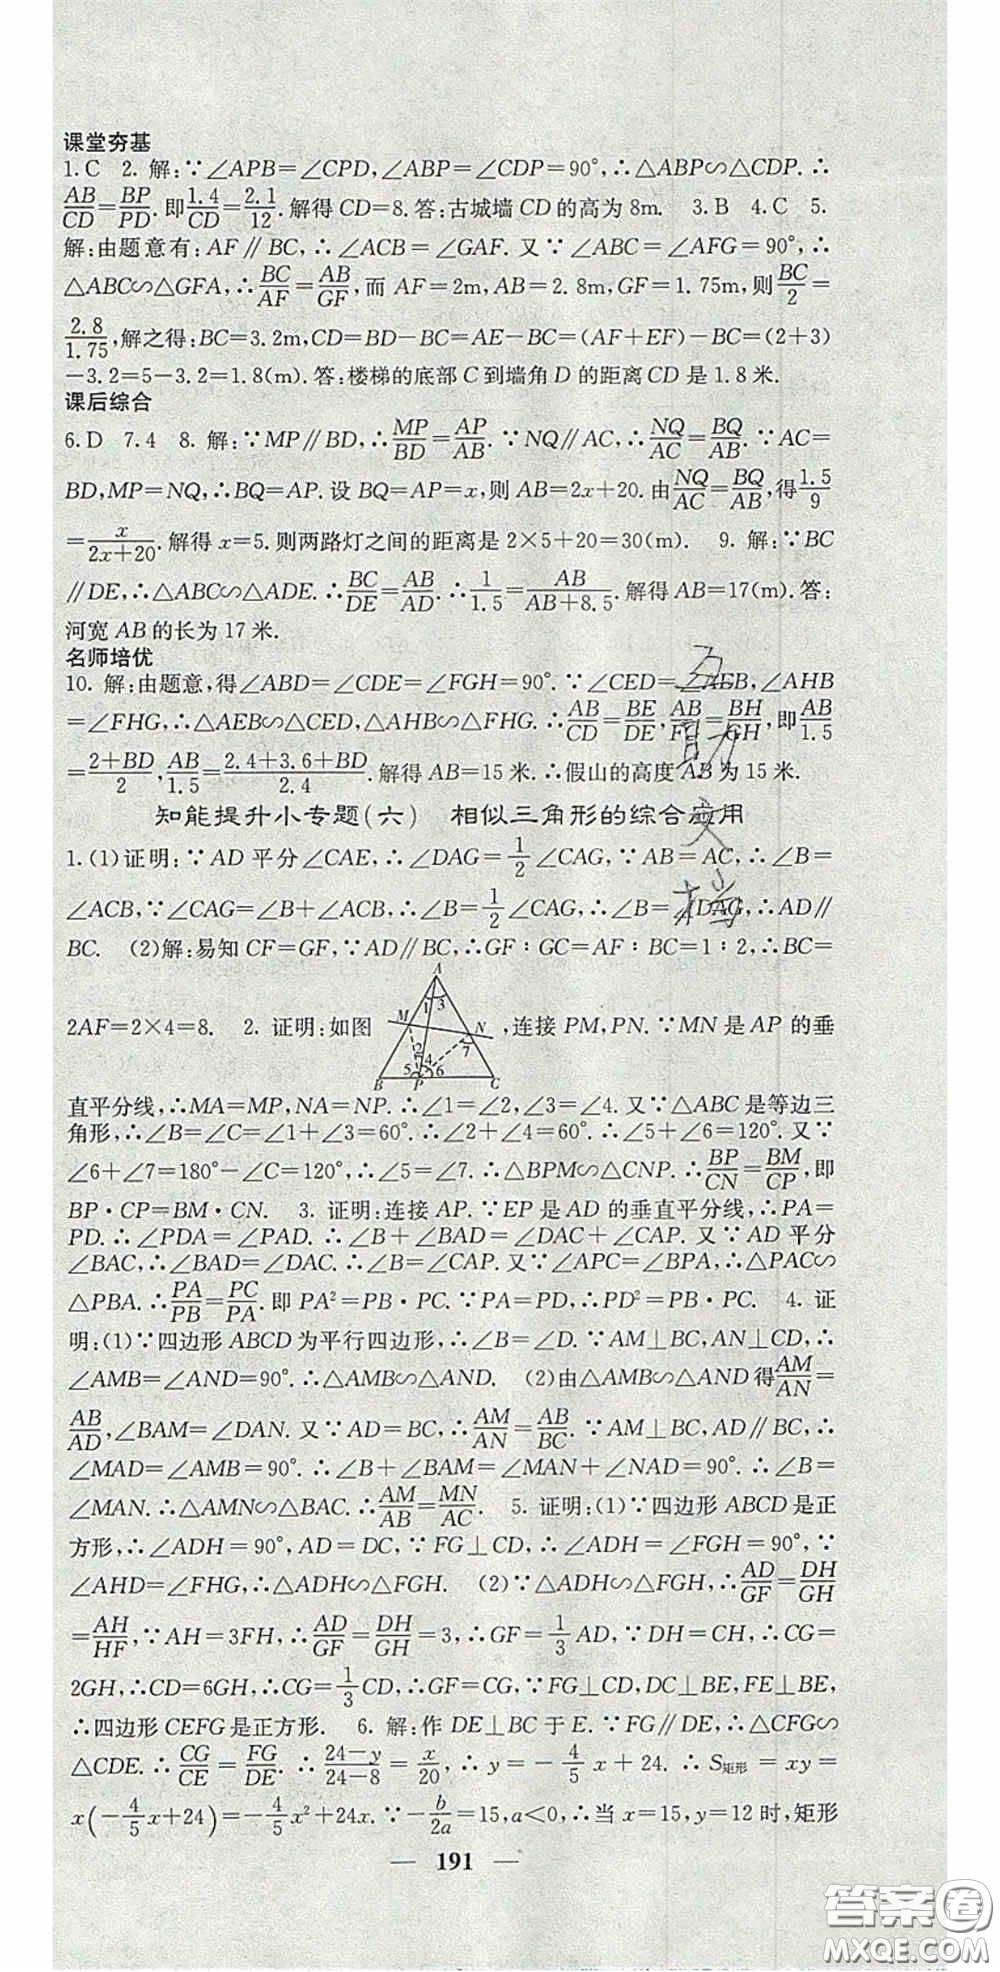 课堂夯基
1.C 2. 解:∵∠APB=∠CPD,∠ABP=∠CDP=90°,∴△ABP∽△CDP.∴
AB/CD=BP/PD.即1.4/CD=2.1/12.解得CD=8.答:古城墙CD的高为8m. 3.B 4.C 5.
解:由题意有:AF∥BC,∴∠ACB=∠GAF.又∵∠ABC=∠AFG=90°,∴
△ABC∽△GFA,∴BC/AF=AB/GF,而AF=2m,AB=2.8m,GF=1.75m,则BC/2=
2.8/1.75,解之得:BC=3.2m,CD=BD-BC=AE-BC=(AF+EF)-BC=(2+3)
-3.2=5-3.2=1.8(m).答:楼梯的底部C到墙角D的距离CD是1.8米.
课后综合
6.D 7.4 8. 解:∵MP∥BD,∴MP/BD=AP/AB.∵NQ∥AC,∴NQ/AC=BQ/AB.∵AC=
BD,MP=NQ,∴BQ=AP.设BQ=AP=x,则AB=2x+20.由NQ/AC=BQ/AB,得1.5/9
=x/(2x+20).解得x=5.则两路灯之间的距离是2×5+20=30(m). 9. 解:∵BC
∥DE,∴△ABC∽△ADE.∴BC/DE=AB/AD.∴1/1.5=AB/(AB+8.5).解得AB=17(m).答:
河宽AB的长为17米.
名师培优
10. 解:由题意,得∠ABD=∠CDE=∠FGH=90°.∵∠CED=∠AEB,∠AHB
=∠FHG,∴△AEB∽△CED,△AHB∽△FHG.∴AB/CD=BE/DE,AB/FG=BH/GH,即AB/1.5
=(2+BD)/2,AB/1.5=(2.4+3.6+BD)/2.4.解得AB=15米.∴假山的高度AB为15米.
知能提升小专题(六) 相似三角形的综合应用
1.(1)证明:∵AD平分∠CAE,∴∠DAG=1/2∠CAG,∵AB=AC,∴∠B=
∠ACB,∵∠CAG=∠B+∠ACB,∴∠B=1/2∠CAG,∴∠B=∠DAG,∴AD∥
BC. (2)解:易知CF=GF,∵AD∥BC,∴GF∶GC=AF∶BC=1∶2,∴BC=
2AF=2×4=8. 2. 证明:如图 A 1 3 M N 2 4 7 5 6 B P C ,连接PM,PN.∵MN是AP的垂
直平分线,∴MA=MP,NA=NP.∴∠1=∠2,∠3=∠4.又∵△ABC是等边三
角形,∴∠B=∠C=∠1+∠3=60°.∴∠2+∠4=60°.∴∠5+∠6=120°.又∵
∠6+∠7=180°-∠C=120°,∴∠5=∠7.∴△BPM∽△CNP.∴BP/CN=BM/CP,即
BP·CP=BM·CN. 3. 证明:连接AP.∵EP是AD的垂直平分线,∴PA=
PD.∴∠PDA=∠PAD.∴∠B+∠BAD=∠DAC+∠CAP.又∵AD平分
∠BAC,∴∠BAD=∠DAC.∴∠B=∠CAP.又∵∠APC=∠BPA,∴△PAC∽
△PBA.∴PA/PB=PC/PA.即PA²=PB·PC.∵PA=PD,∴PD²=PB·PC. 4. 证
明:(1)∵四边形ABCD为平行四边形,∴∠B=∠D.∵AM⊥BC,AN⊥CD,∴
∠AMB=∠AND=90°.∴△AMB∽△AND. (2)由△AMB∽△AND得AM/AN=
AB/AD,∠BAM=∠DAN.又∵AD=BC,∴AM/AN=AB/BC.∵AM⊥BC,AD∥BC,∴
∠MAD=∠AMB=90°.∴∠B+∠BAM=∠MAN+∠NAD=90°.∴∠B=
∠MAN.∴△AMN∽△BAC.∴AM/AB=MN/AC. 5. 证明:(1)∵四边形ABCD是正
方形,∴∠ADH=90°,AD=DC,∵FG⊥CD,∴∠ADH=∠FGH=90°,∵
∠AHD=∠FHG,∴△ADH∽△FGH. (2)∵△ADH∽△FGH,∴AD/GF=DH/GH
=AH/HF,∵AH=3FH,∴AD/GF=DH/GH=3,∴GF=1/3AD,∵DH=CH,∴CG=
2GH,∴CD=6GH,∴CG=1/3CD,∴GF=CG,∵FG⊥CD,DC⊥BE,FE⊥BE,
∴四边形CEFG是正方形. 6. 解:作DE⊥BC于E.∵FG∥DE,∴△CFG∽
△CDE.∴CG/CE=FG/DE.∴(24-y)/(24-8)=x/20,∴y=-4/5x+24.∴S矩形=xy=
x(-4/5x+24)=-4/5x²+24x.∵-b/2a=15,a<0,∴当x=15,y=12时,矩形
— 191 —
互助文档
答案圈
MXQE.COM